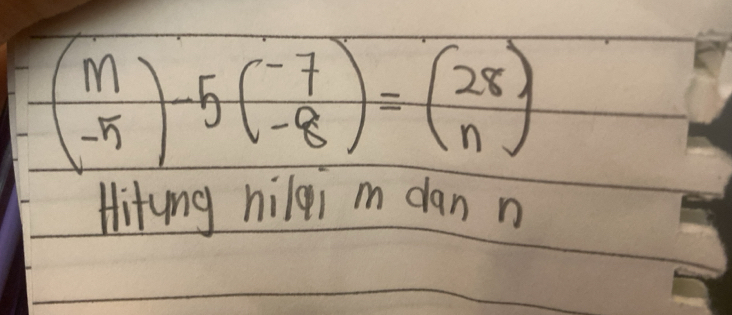 (m -5) -5 (-7 -8) = (28 n)
Hitung nilai m dan n